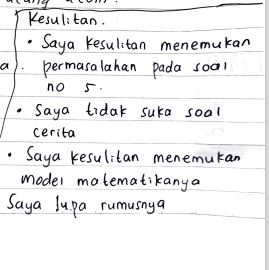 Kesulitan.
• Saya kesulitan menemukan
a). permasalahan pada soal
no 5.
• Saya tidak suka soal
cerita
• Saya kesulitan menemukan
model matematikanya
Saya lupa rumusnya